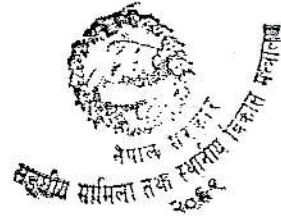 नेपाल सरकार
सङ्घीय मामिला तथा स्थानीय विकास मन्त्रालय